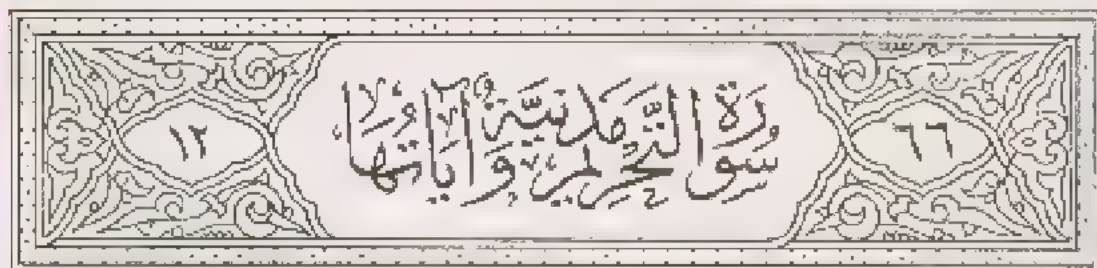 ٦٦
سُورَةُ التَّحْرِيمِ مَدَنِيَّةٌ وَآيَاتُهَا
١٢